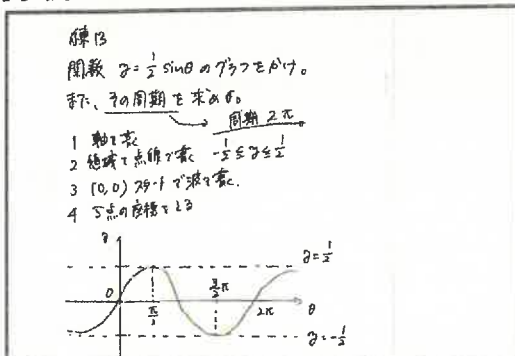 練13
関数 y=1/2 sinθ のグラフをかけ。
また、その周期を求めよ。
周期 2π
1 軸を書く
2 値域を点線で書く -1/2≦y≦1/2
3 (0,0)スタートで波を書く.
4 5点の座標をとる
y
y=1/2
0
π/2
3/2π
2π
θ
y=-1/2